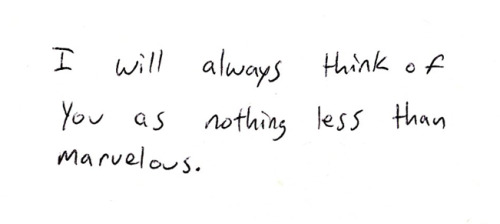 I will always think of
You as nothing less than
marvelous.